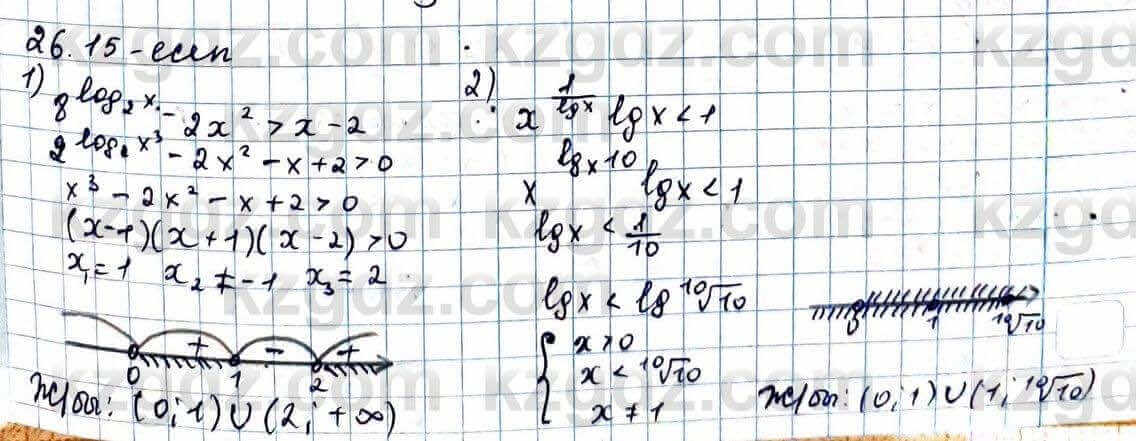 26.15-есеп
1) 8^{log₂x} - 2x² > x - 2
2^{log₂x³} - 2x² - x + 2 > 0
x³ - 2x² - x + 2 > 0
(x-1)(x+1)(x-2) > 0
x₁ = 1 x₂ ≠ -1 x₃ = 2
+ - +
0 1 2
Ж/бы: (0; 1) ∪ (2; +∞)
2) x^{1/lgx} lgx < 1
x^{lgₓ10} lgx < 1
lgx < 1/10
lgx < lg ¹⁰√10
{ x > 0
x < ¹⁰√10
x ≠ 1
0 1 ¹⁰√10
Ж/бы: (0; 1) ∪ (1; ¹⁰√10)
kzgdz.com